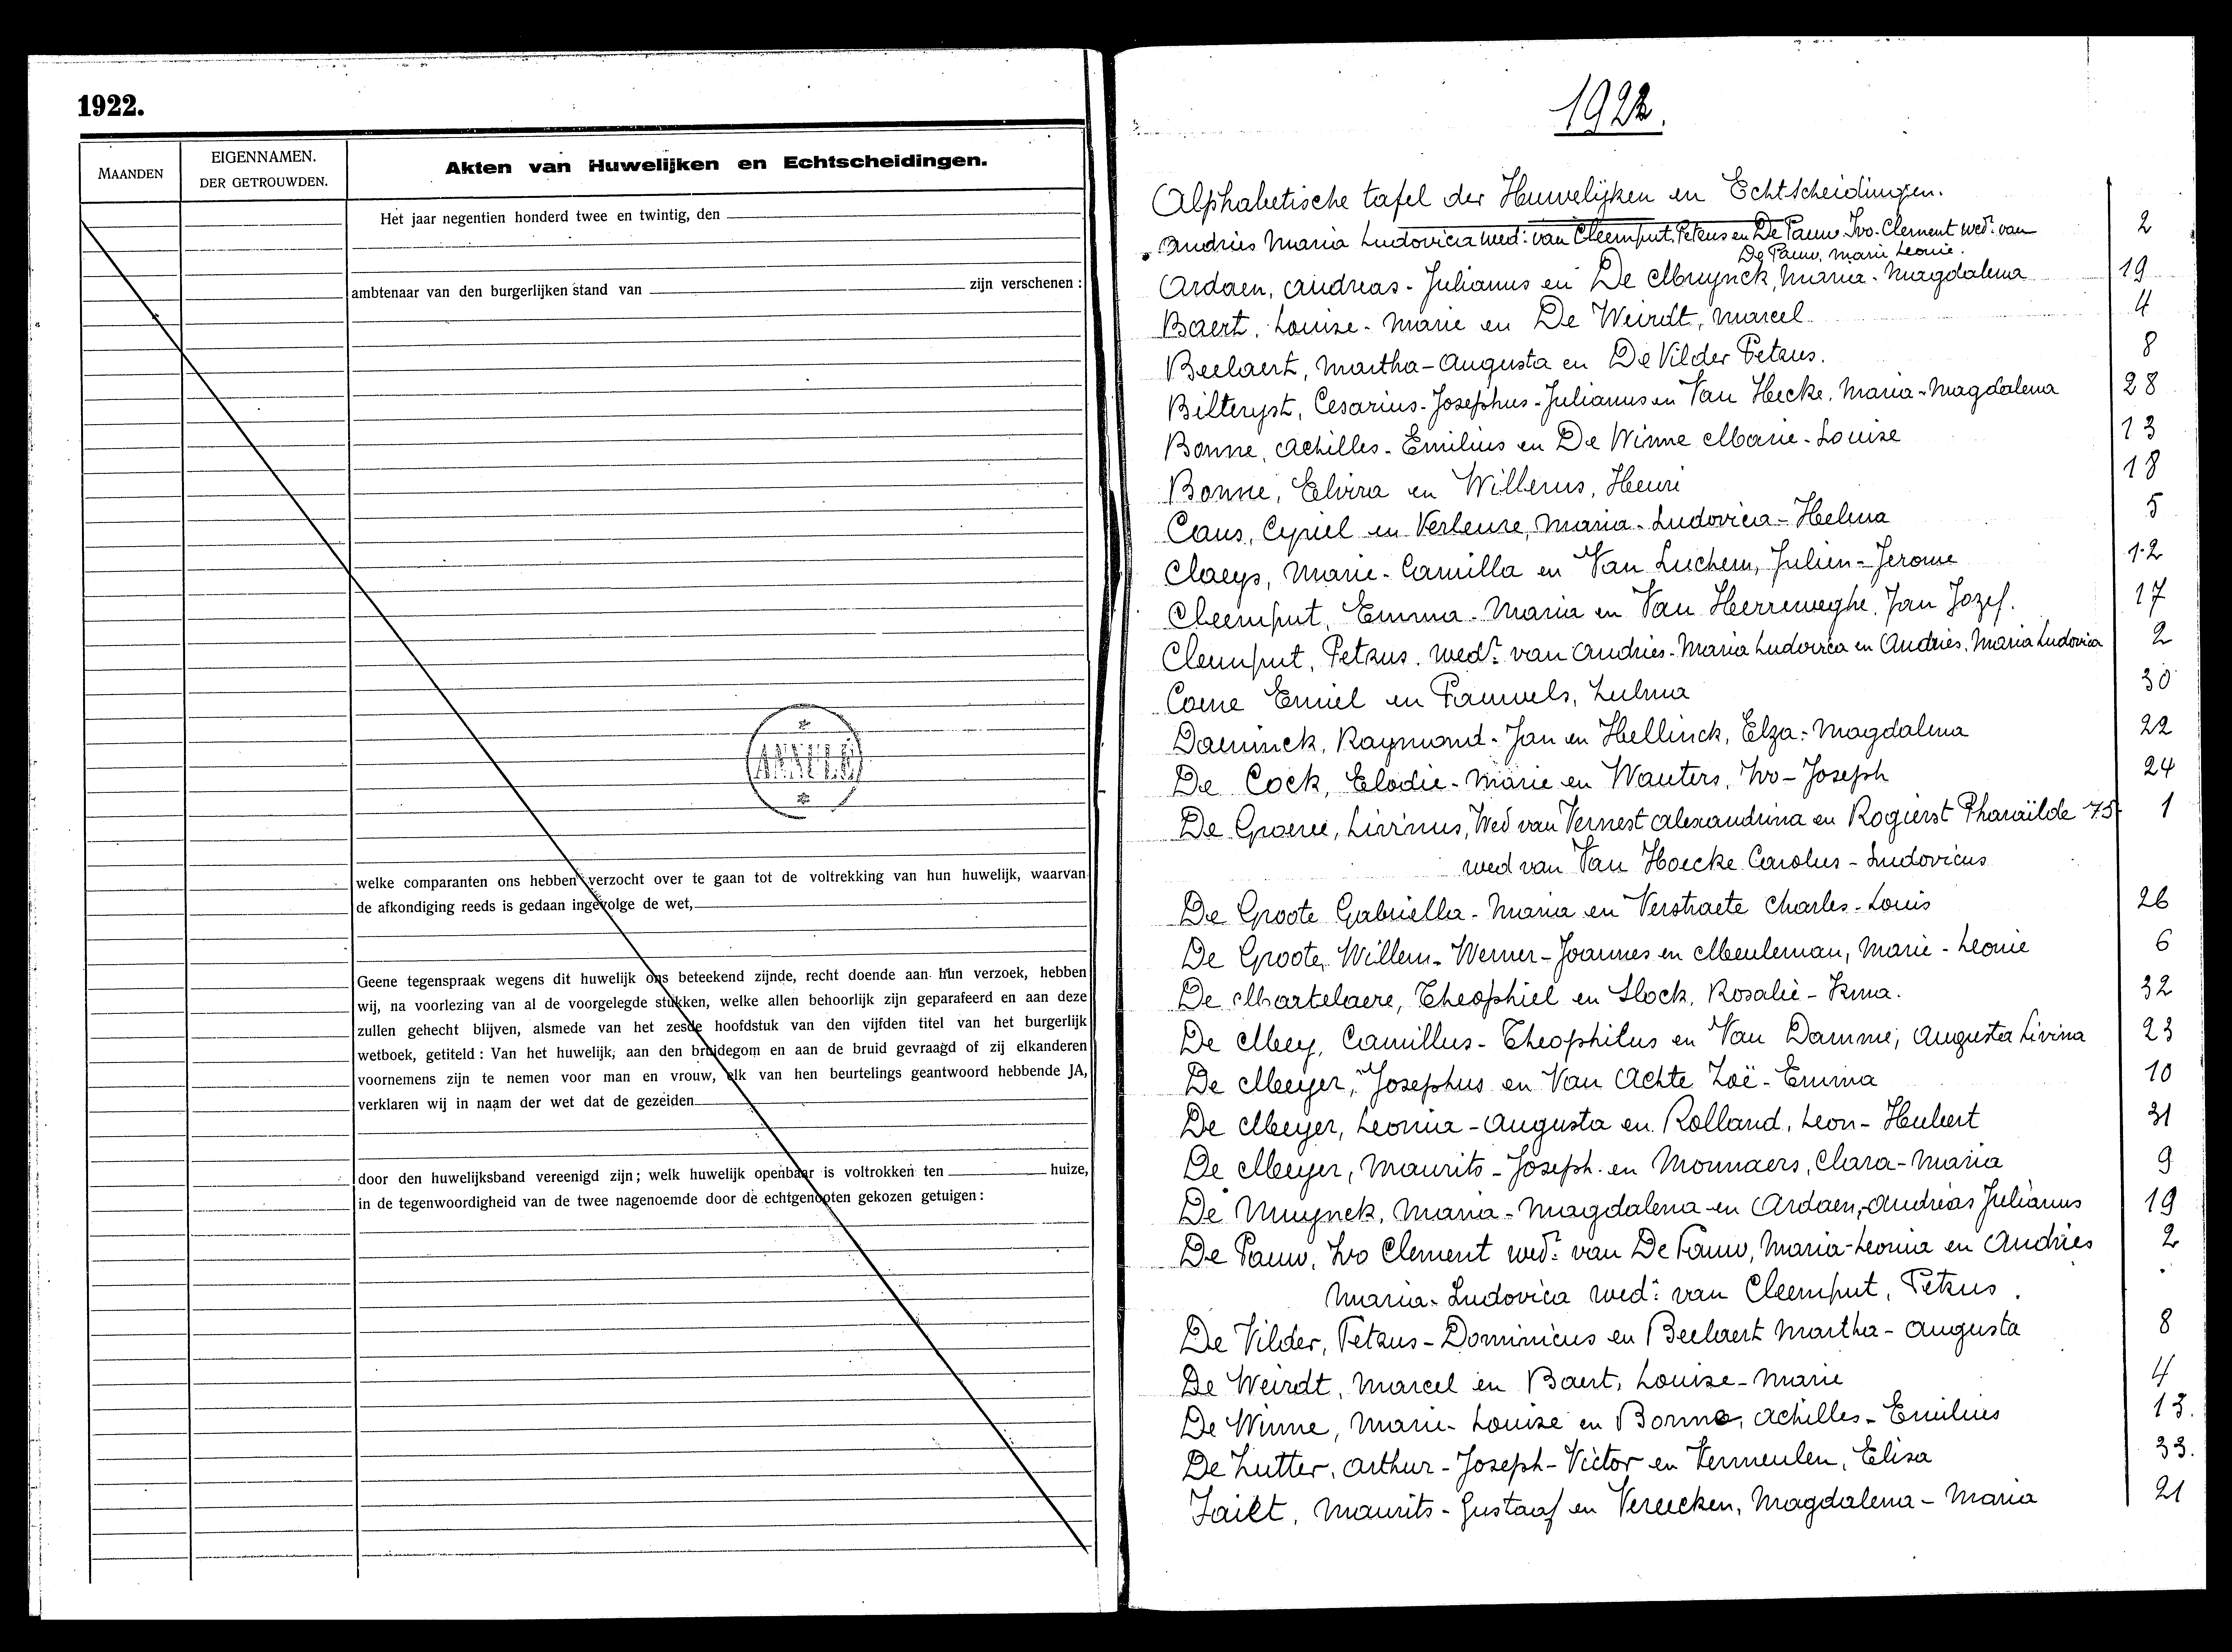 1922.
MAANDEN
EIGENNAMEN.
DER GETROUWDEN.
Akten van Huwelijken en Echtscheidingen.
Het jaar negentien honderd twee en twintig, den
ambtenaar van den burgerlijken stand van zijn verschenen :
ANNULÉ
welke comparanten ons hebben verzocht over te gaan tot de voltrekking van hun huwelijk, waarvan
de afkondiging reeds is gedaan ingevolge de wet,
Geene tegenspraak wegens dit huwelijk ons beteekend zijnde, recht doende aan hun verzoek, hebben
wij, na voorlezing van al de voorgelegde stukken, welke allen behoorlijk zijn geparafeerd en aan deze
zullen gehecht blijven, alsmede van het zesde hoofdstuk van den vijfden titel van het burgerlijk
wetboek, getiteld : Van het huwelijk, aan den bruidegom en aan de bruid gevraagd of zij elkanderen
voornemens zijn te nemen voor man en vrouw, elk van hen beurtelings geantwoord hebbende JA,
verklaren wij in naam der wet dat de gezeiden
door den huwelijksband vereenigd zijn ; welk huwelijk openbaar is voltrokken ten huize,
in de tegenwoordigheid van de twee nagenoemde door de echtgenooten gekozen getuigen :
1922.
Alphabetische tafel der Huwelijken en Echtscheidingen.
Andries Maria Ludovica wed: van Cleemput, Petrus en De Pauw Ivo-Clement wedr van 2
De Pauw, Marie Leonie.
Ardaen, Andreas-Julianus en De Muynck, Maria-Magdalena 19
Baert, Louise-Marie en De Weirdt, Marcel 4
Beelaert, Martha-Augusta en De Vilder Petrus. 8
Bilteryst, Cesarius-Josephus-Julianus en Van Hecke, Maria-Magdalena 28
Bonne, Achilles-Emilius en De Winne Marie-Louise 13
Bonne, Elvira en Willems, Henri 18
Caus, Cyriel en Verleure, Maria-Ludovica-Helena 5
Claeys, Marie-Camilla en Van Luchem, Julien-Jerome 12
Cleemput, Emma-Maria en Van Herreweghe, Jan Jozef. 17
Cleemput, Petrus. wedr van Andries-Maria Ludovica en Andries, Maria Ludovica 2
Coene Emiel en Pauwels, Zulma 30
Daeninck, Raymond-Jan en Hellinck, Elza-Magdalena 22
De Cock, Elodie-Marie en Wauters, Ivo-Joseph 24
De Groeve, Livinus, Wed van Vernest Alexandrina en Rogierst Pharaïlde 75 1
wed van Van Hoecke Carolus-Ludovicus
De Groote Gabriella-Maria en Verstraete Charles-Louis 26
De Groote, Willem-Werner-Joannes en Meuleman, Marie-Leonie 6
De Martelaere, Theophiel en Slock, Rosalie-Irma. 32
De Mey, Camillus-Theophilus en Van Damme, Augusta Livina 23
De Meyer, Josephus en Van Achte Zoë-Emma 10
De Meyer, Leonia-Augusta en Rolland, Leon-Hubert 31
De Meyer, Maurits-Joseph en Monnaers, Clara-Maria 9
De Muynck, Maria-Magdalena en Ardaen, Andreas Julianus 19
De Pauw, Ivo Clement wedr van De Pauw, Maria-Leonia en Andries 2
Maria-Ludovica wed: van Cleemput, Petrus.
De Vilder, Petrus-Dominicus en Beelaert Martha-Augusta 8
De Weirdt, Marcel en Baert, Louise-Marie 4
De Winne, Marie-Louise en Bonne, Achilles-Emilius 13.
De Zutter, Arthur-Joseph-Victor en Vermeulen, Elisa 33.
Maurits-Gustaaf en Vereecken, Magdalena-Maria 21